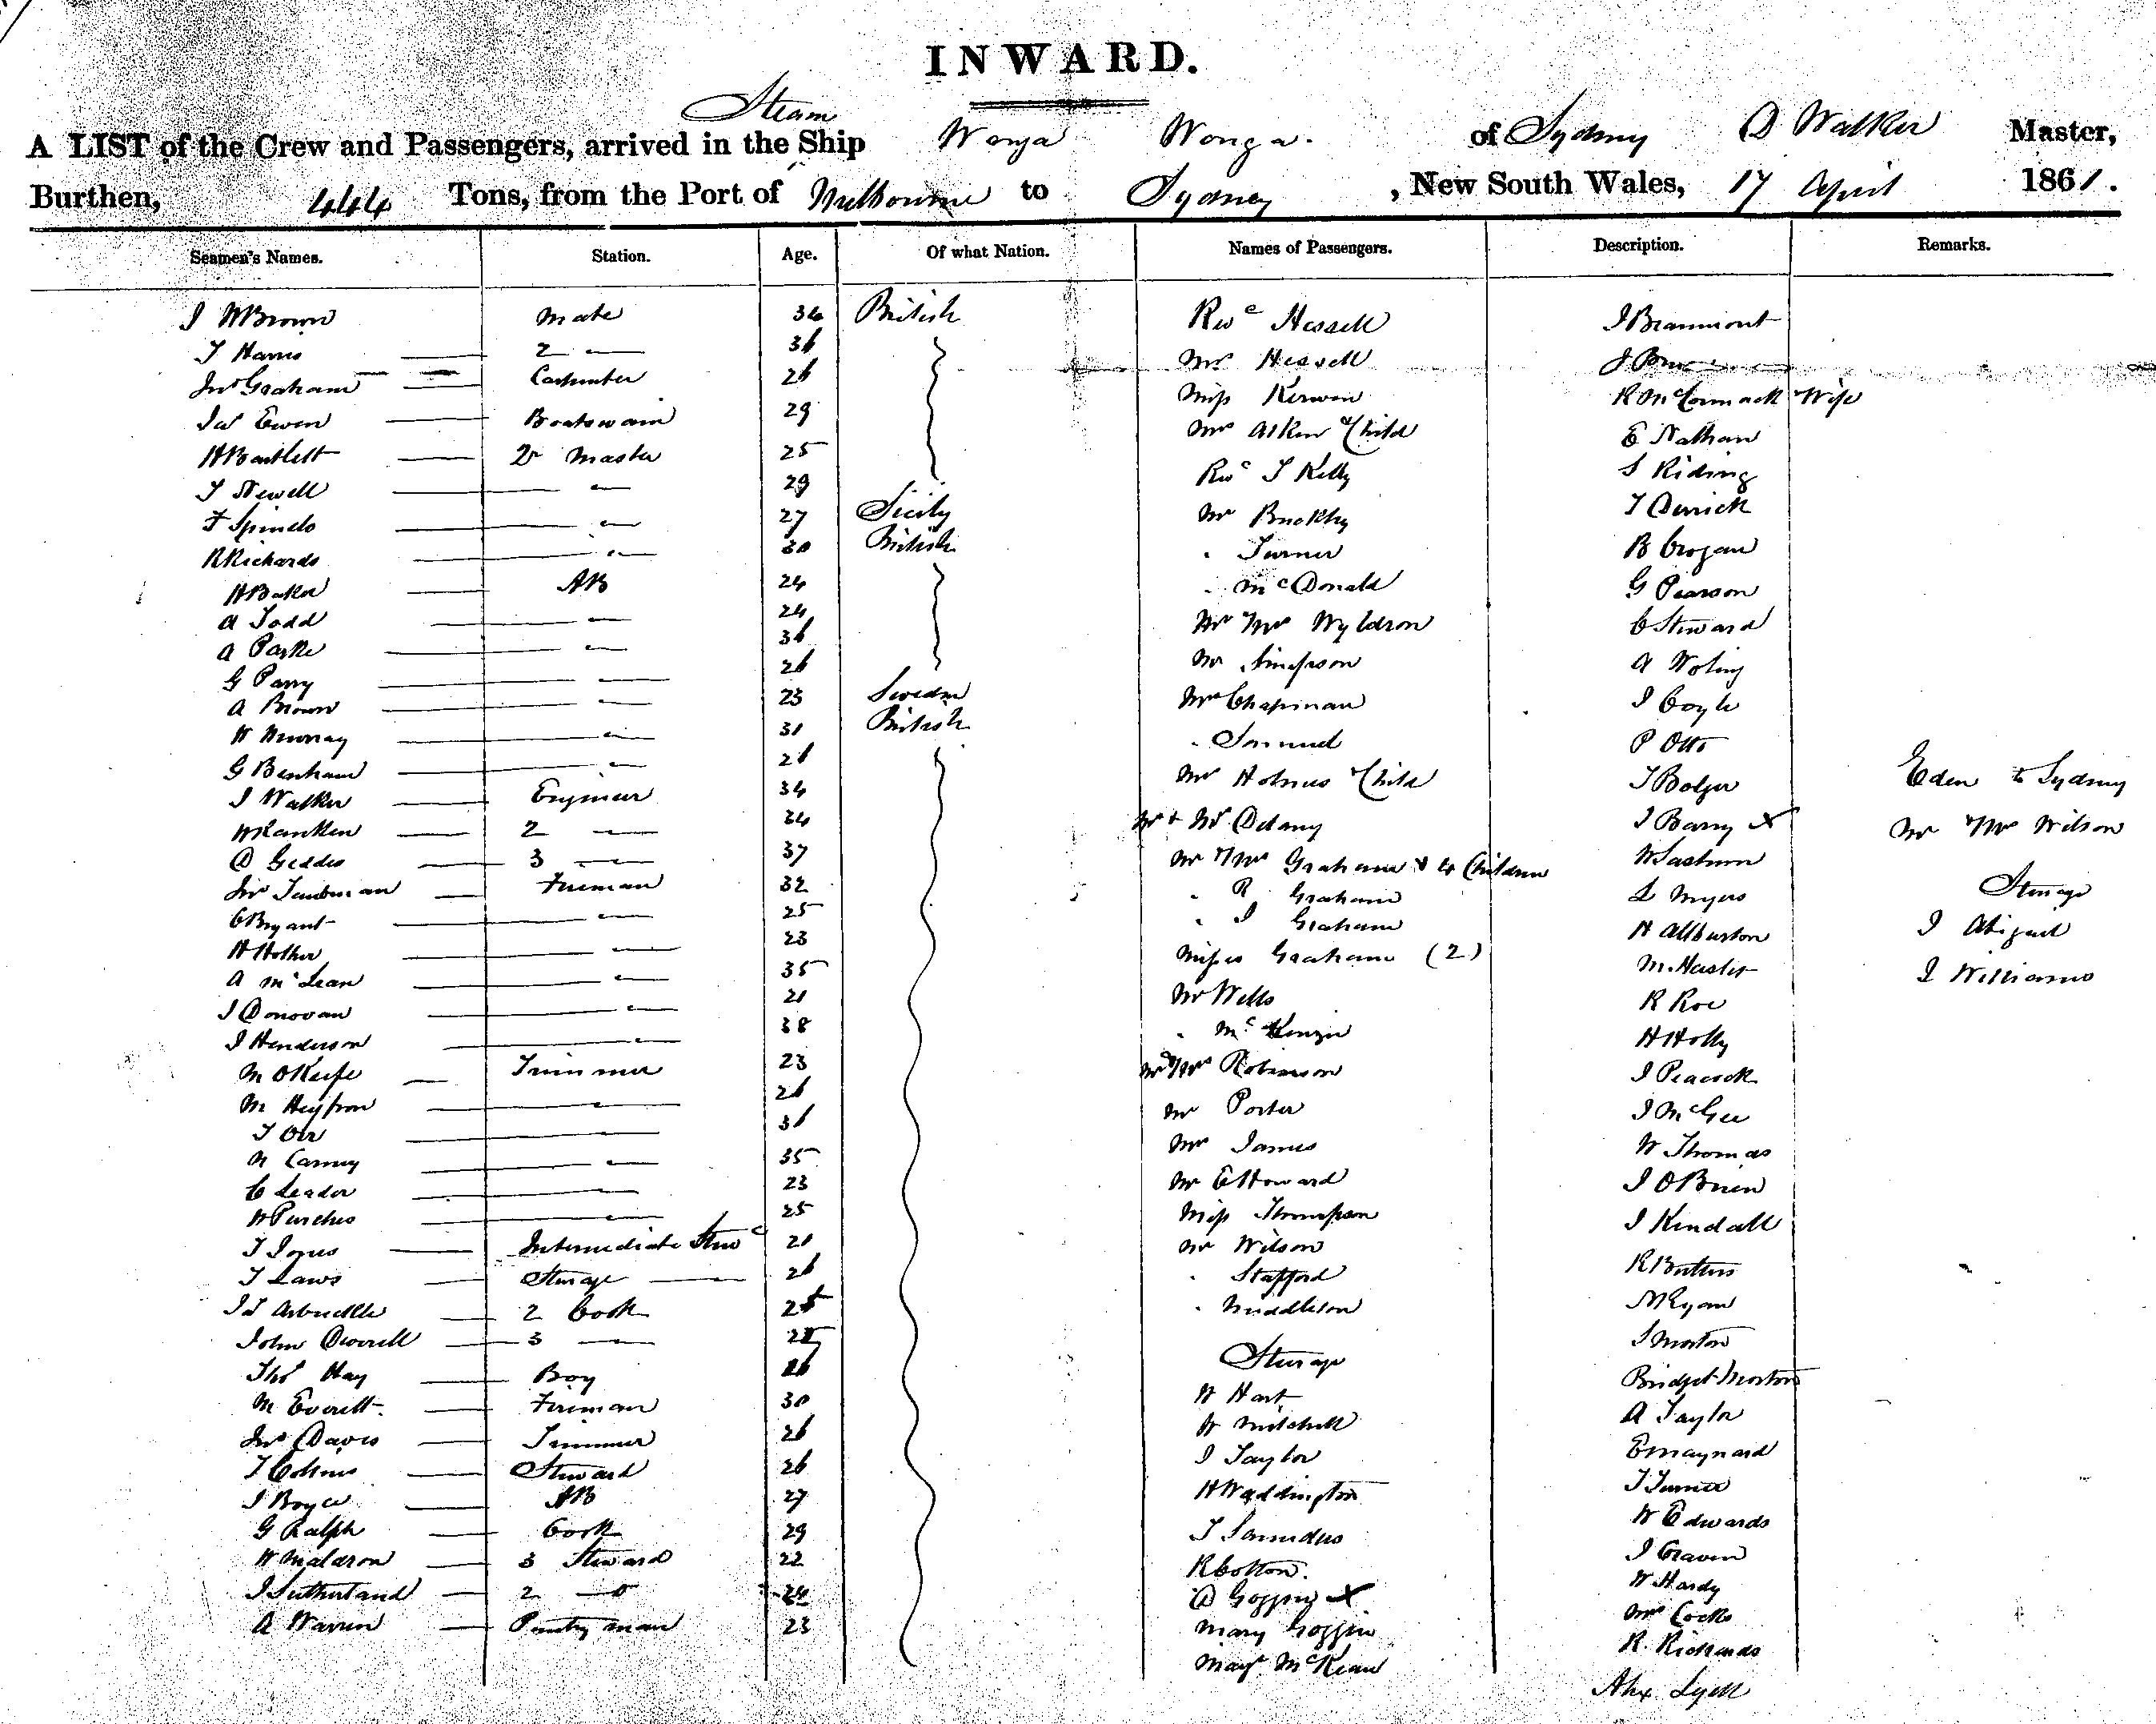 INWARD.
Steam
A LIST of the Crew and Passengers, arrived in the Ship Wonga Wonga. of Sydney D Walker Master,
Burthen, 444 Tons, from the Port of Melbourne to Sydney, New South Wales, 17 April 1861.
Seamen's Names. Station. Age. Of what Nation. Names of Passengers. Description. Remarks.
J W Brown mate 34 British Revd Hessell J Beaumont
T Harris 2 — 36 Mrs Hessell
Jno Graham — Carpenter 26 Miss Kerwin R McCormack Wife
Jas Ewen — Boatswain 29 Mrs Child E Nathan
H Bartlett — Qr Master 25 Revd J Kelly S Riding
T Newell — 29 Mr Buckley T Derrick
F Spinelo — 27 Sicily " Turner B Crogan
R Richards — 30 British " McDonald G Pearson
H Baker — AB 24 Mr & Mrs Wyldson C Steward
A Todd — 24 Mr Simpson A
A Parke — 36 Mr Chapman J Coyle
G Parry — 26 " Samuel P Otto
A Brown — 23 Sweden Mrs Holmes & Child T Bolger Eden to Sydney
W Murray — 31 British Mr & Mrs Delany J Barry x Mr & Mrs Wilson
G Benham — 26 Mr & Mrs Graham & 4 Children W
J Walker — Engineer 34 " R Graham L Myers Steerage
W Ranken — 2 — 34 " J Graham H Allburton J Abigail
D Geddes — 3 — 37 Misses Graham (2) M. Haslet J Williams
Jno — Fireman 32 Mr Wells R Roe
C Bryant — 25 " McKenzie H Holly
H Hother — 23 Mr & Mrs Robinson J Peacock
A McLean — 35 Mr Porter J McGee
J Donovan — 21 Mr James W Thomas
J Henderson — 38 Mr E Howard J O'Brien
M O'Keefe — Trimmer 23 Miss Thompson J Kendall
M Heffron — 26 Mr Wilson R Butters
T Orr — 36 " Stafford M Ryan
N Carney — 35 " Middleton J Morton
C Leader — 23 Steerage Bridget Morton
W Purches — 25 W Hart A Taylor
T Jones — Intermediate Stewd 21 W Mitchell E Maynard
T Laws — Steerage — 26 J Taylor T Turner
Jas Arbuckle — 2 Cook 25 H Waddington W Edwards
John Overell — 3 — T Saunders J Craven
Thos Hay — Boy 16 R Cotton. W Hardy
M Everett. — Fireman 30 D Goggin x Mrs Cocks
Jno Davis — Trimmer 26 Mary Goggin R. Richards
T Collins — Steward 26 Mary McKean Alex Lyell
J Boyce — AB 27
G Ralph — Cook 29
W Maldron — 3 Steward 22
J Sutherland — 2 —o 24
A Warren — Pantry man 23